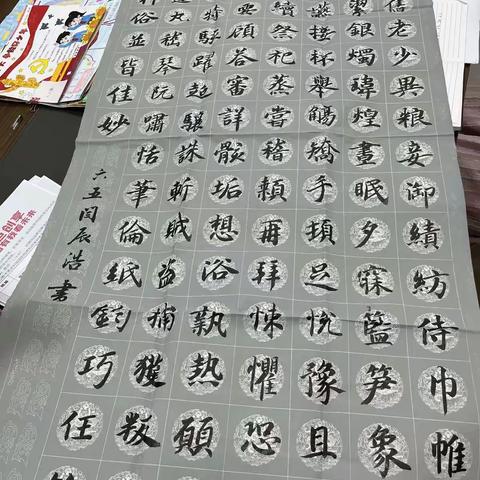 舊老少異粮妾御績紡侍巾帷
銀燭煒煌晝眠夕寐籃笋象
接杯舉觴矯手頓足悅豫且
續祭祀蒸嘗稽顙再拜悚懼恐
要顧答審詳骸垢想浴執熱願
特駭躍超驤誅斬賊盜捕獲叛
丸嵇琴阮嘯恬筆倫紙鈞巧任
俗並皆佳妙
六五闫辰浩書